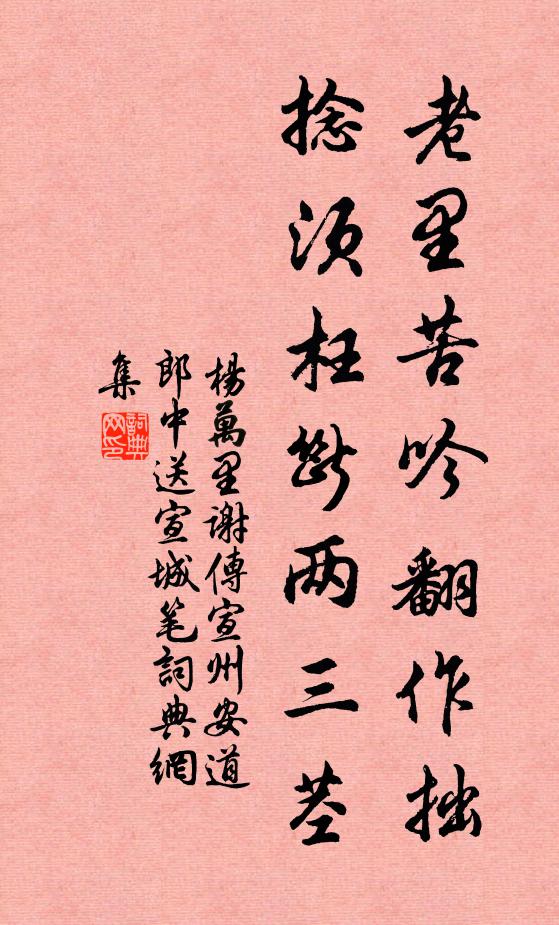 老里苦吟翻作拙
捻须枉断两三茎
楊萬里謝傅宣州安道
郎中送宣城笔詞典網
集
詞典
网印